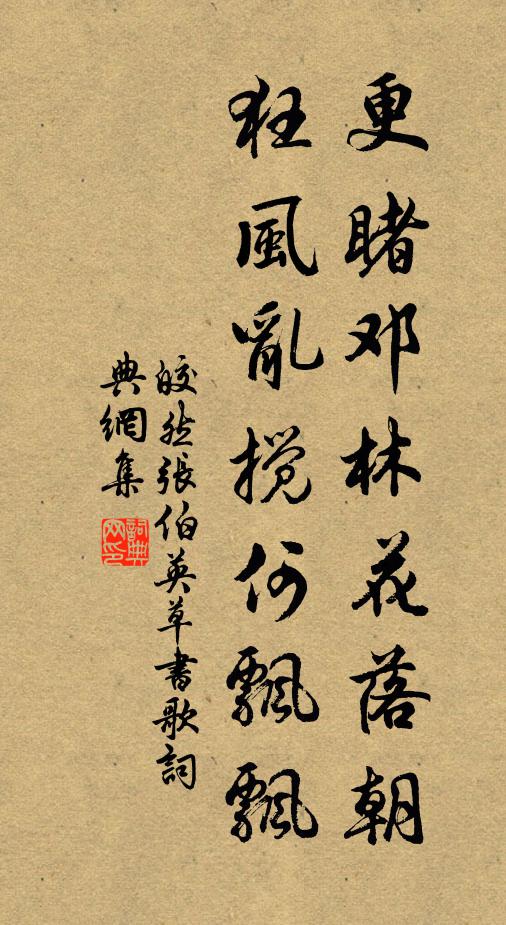 更睹邓林花落朝
狂風亂搅何飄飄
皎然張伯英草書歌詞
典網集
詞典网印